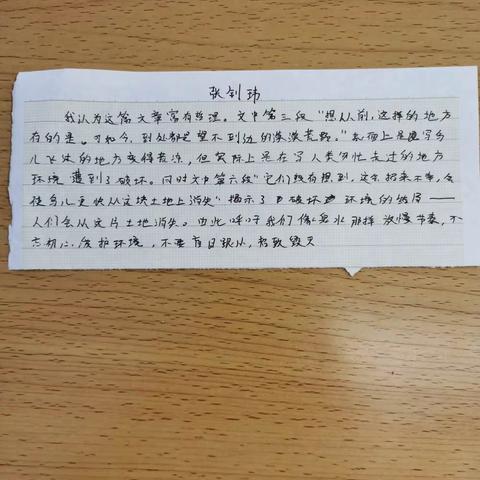 张钊玮
我认为这篇文章富有哲理。文中第三段“想从前,这样的地方
有的是。可如今,到处都是望不到边的漠漠荒野。”表面上是描写鸟
儿飞过的地方变得荒凉,但实际上是在写人类匆忙走过的地方
环境遭到了破坏。同时文中第六段“它们没有想到,这会招来不幸,会
使鸟儿更快从这块土地上消失”揭示了破坏环境的结局——
人们会从这片土地消失。由此呼吁我们像那样放慢节奏,不
忘初心,保护环境,不要盲目跟从,招致毁灭